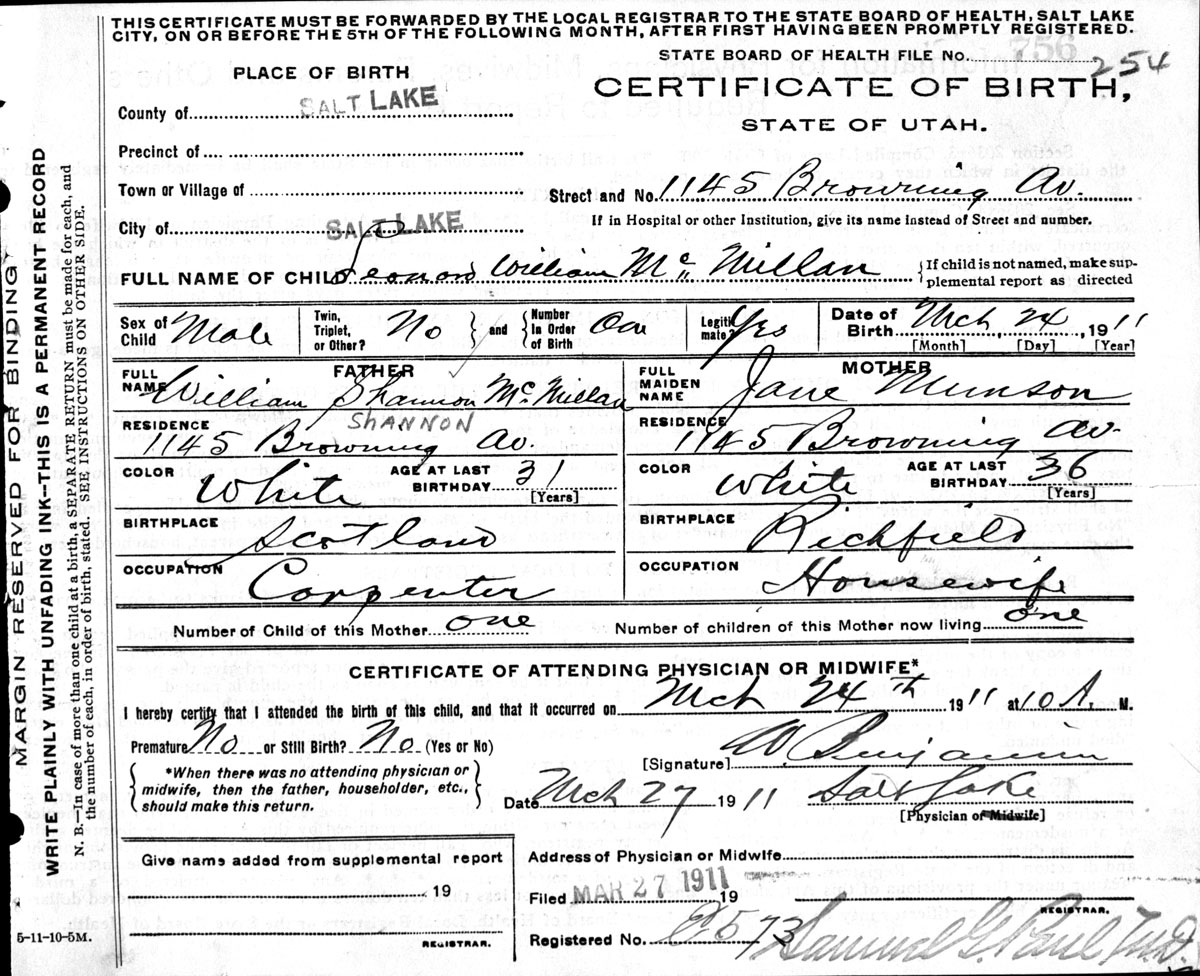 THIS CERTIFICATE MUST BE FORWARDED BY THE LOCAL REGISTRAR TO THE STATE BOARD OF HEALTH, SALT LAKE
CITY, ON OR BEFORE THE 5TH OF THE FOLLOWING MONTH, AFTER FIRST HAVING BEEN PROMPTLY REGISTERED.
STATE BOARD OF HEALTH FILE No. 756 254
PLACE OF BIRTH
CERTIFICATE OF BIRTH,
STATE OF UTAH.
County of SALT LAKE
Precinct of
Town or Village of
Street and No. 1145 Browning Av.
City of SALT LAKE
If in Hospital or other Institution, give its name instead of Street and number.
FULL NAME OF CHILD Leonard William Mc Millan {If child is not named, make sup-
plemental report as directed
Sex of Child Male
Twin, Triplet, or Other? No } and { Number In Order of Birth One
Legiti mate? Yes
Date of Birth Mch 24 1911
[Month] [Day] [Year]
FATHER
FULL NAME William Shannon Mc Millan
SHANNON
RESIDENCE 1145 Browning Av.
COLOR White AGE AT LAST BIRTHDAY 31 [Years]
BIRTHPLACE Scotland
OCCUPATION Carpenter
MOTHER
FULL MAIDEN NAME Jane Munson
RESIDENCE 1145 Browning Av.
COLOR White AGE AT LAST BIRTHDAY 36 [Years]
BIRTHPLACE Richfield
OCCUPATION Housewife
Number of Child of this Mother one Number of children of this Mother now living one
CERTIFICATE OF ATTENDING PHYSICIAN OR MIDWIFE*
I hereby certify that I attended the birth of this child, and that it occurred on Mch 24th 1911 at 10 A. M.
Premature No or Still Birth? No (Yes or No)
[Signature] W. Benjamin
{*When there was no attending physician or
midwife, then the father, householder, etc.,
should make this return.}
Date Mch 27 1911 Salt Lake
[Physician or Midwife]
Give name added from supplemental report
19
REGISTRAR.
5-11-10-5M.
Address of Physician or Midwife
Filed MAR 27 1911 19
REGISTRAR.
Registered No. 573 Samuel G. Paul M.D.
MARGIN RESERVED FOR BINDING
WRITE PLAINLY WITH UNFADING INK—THIS IS A PERMANENT RECORD
N. B.—In case of more than one child at a birth, a SEPARATE RETURN must be made for each, and
the number of each, in order of birth, stated. SEE INSTRUCTIONS ON OTHER SIDE.